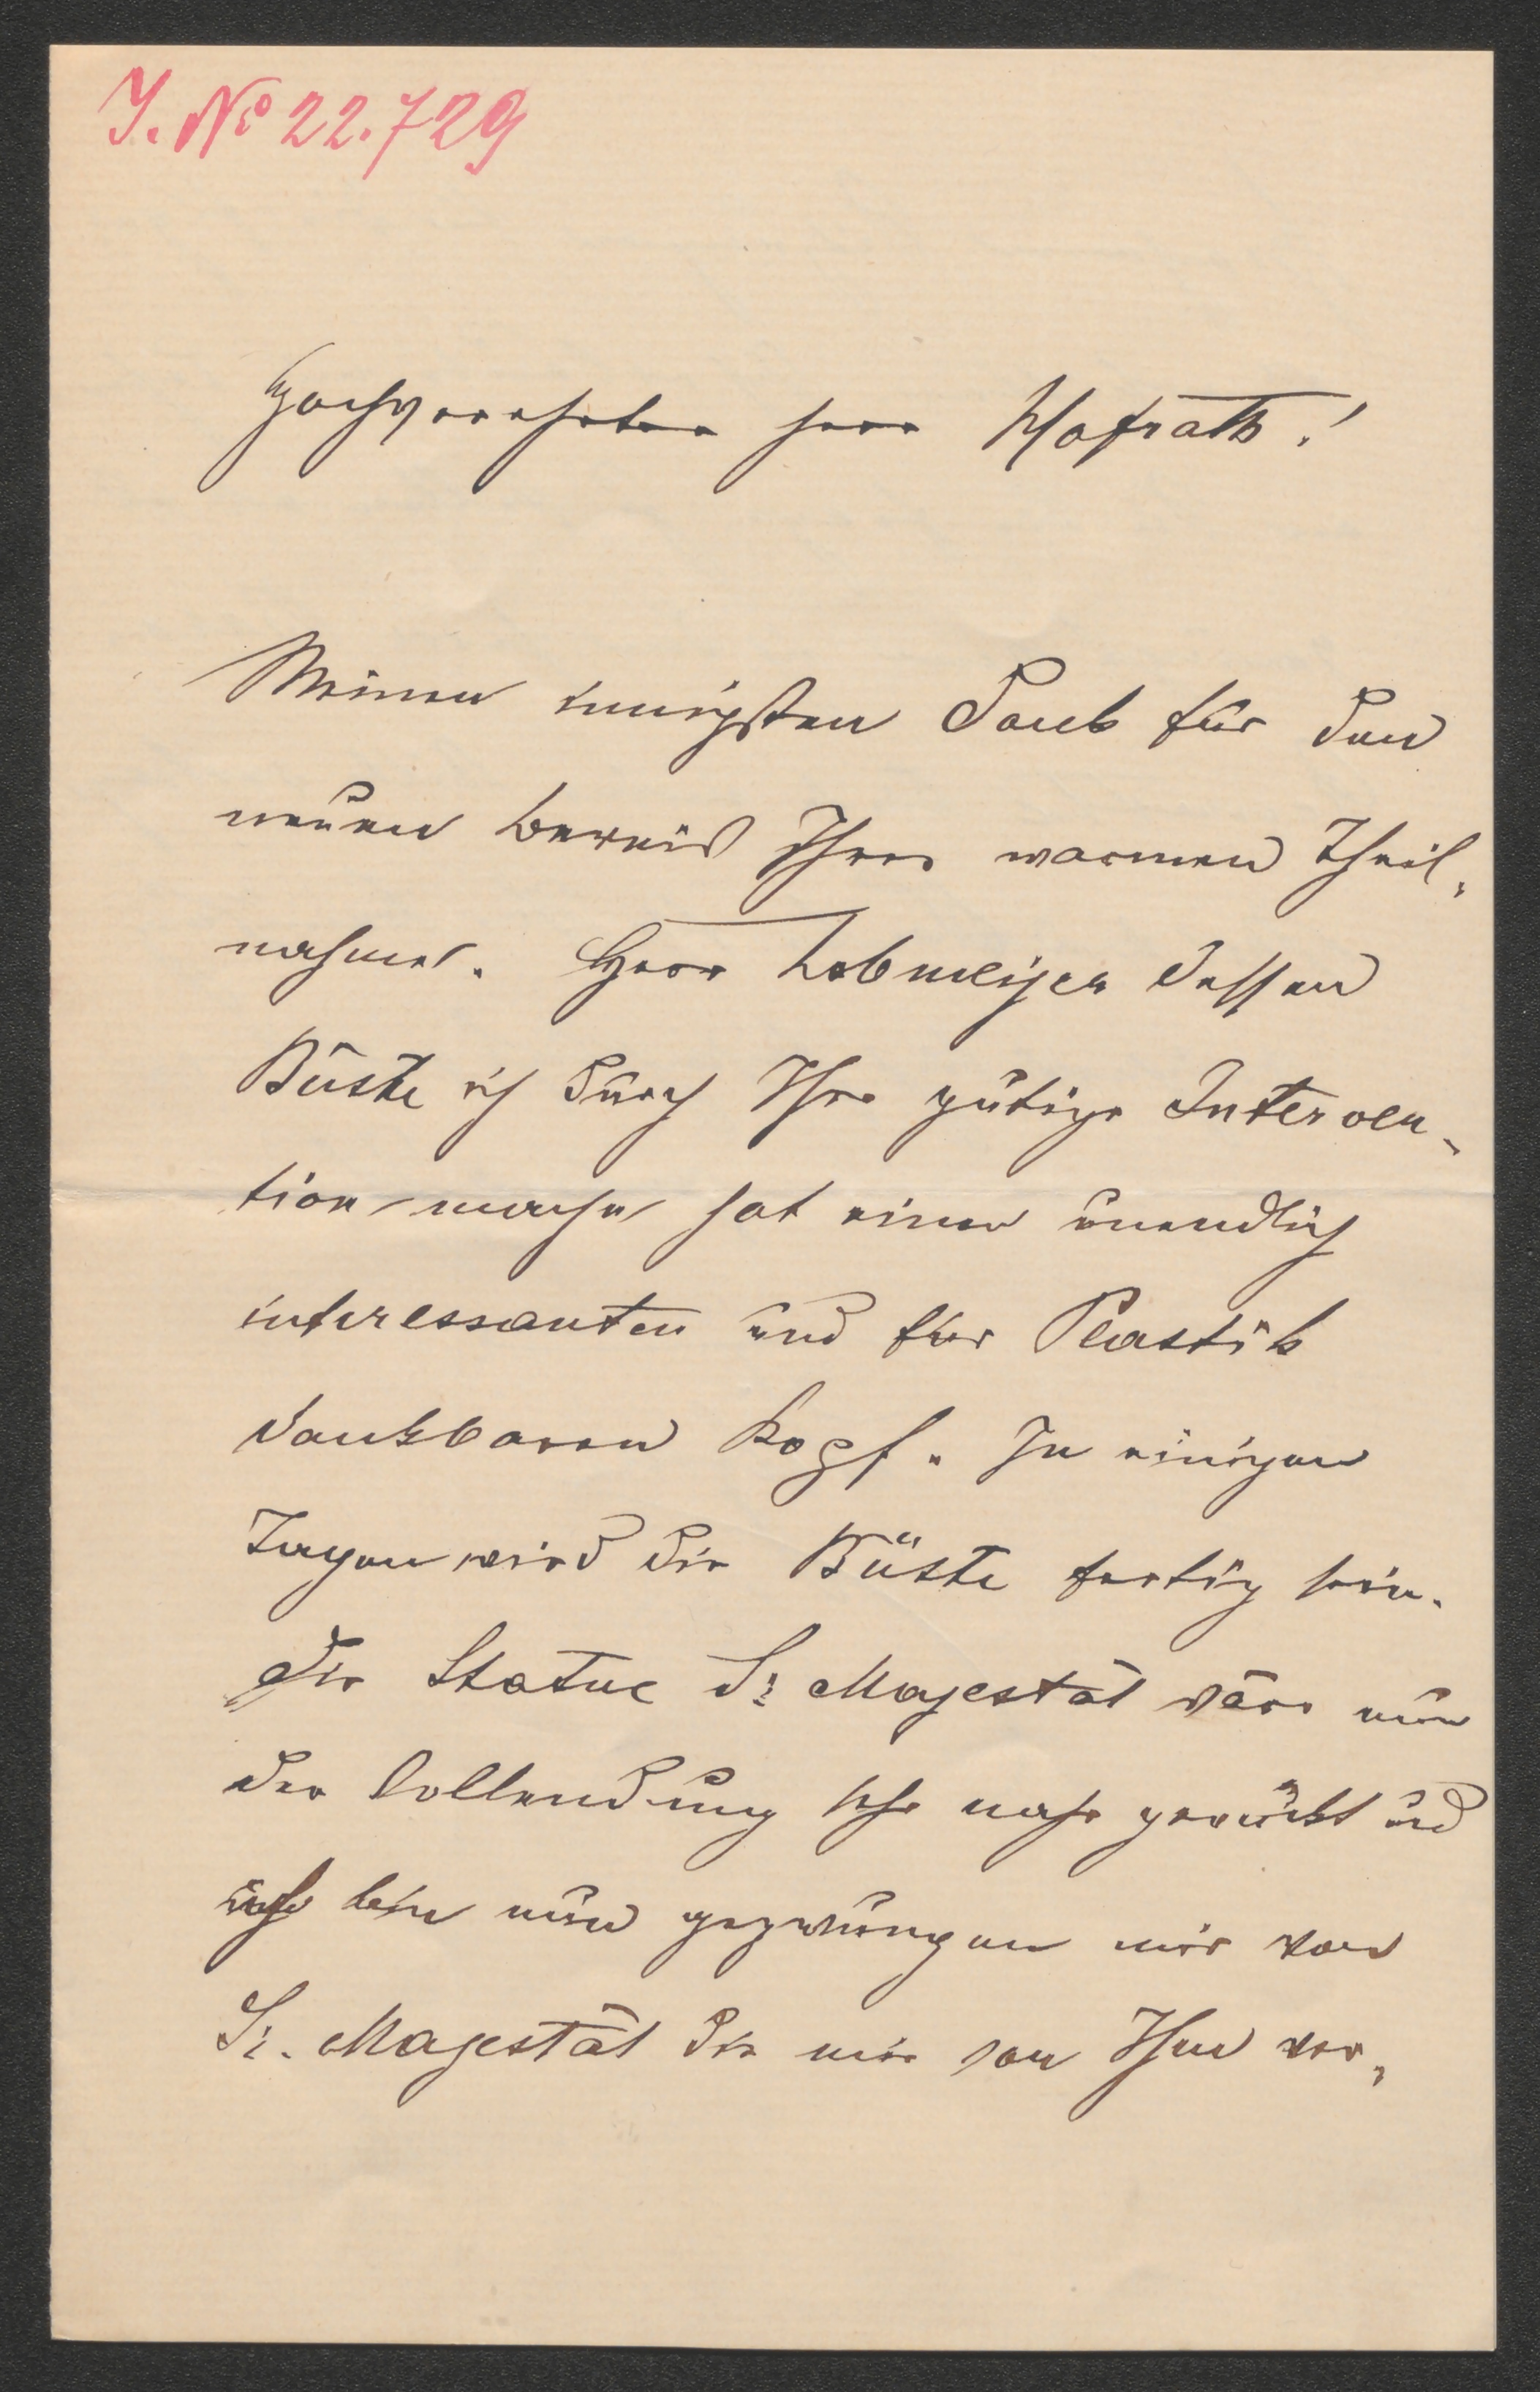 J. No 22.729
Hochverehrter Herr Hofrath!
Meinen innigsten Dank für den
neuen Beweis Ihrer warmen Theil-
nahme. Herr Lobmeijer dessen
Büste ich durch Ihre gütige Interven-
tion mache hat einen unendlich
interessanten und für Plastik
dankbaren Kopf. In einigen
Tagen wird die Büste fertig sein.
Die Statue Sr Majestät wäre nun
der Vollendung sehr nahe gerückt und
ich bin nun gezwungen mir von
Sr. Majestät die mir von Ihm ver-